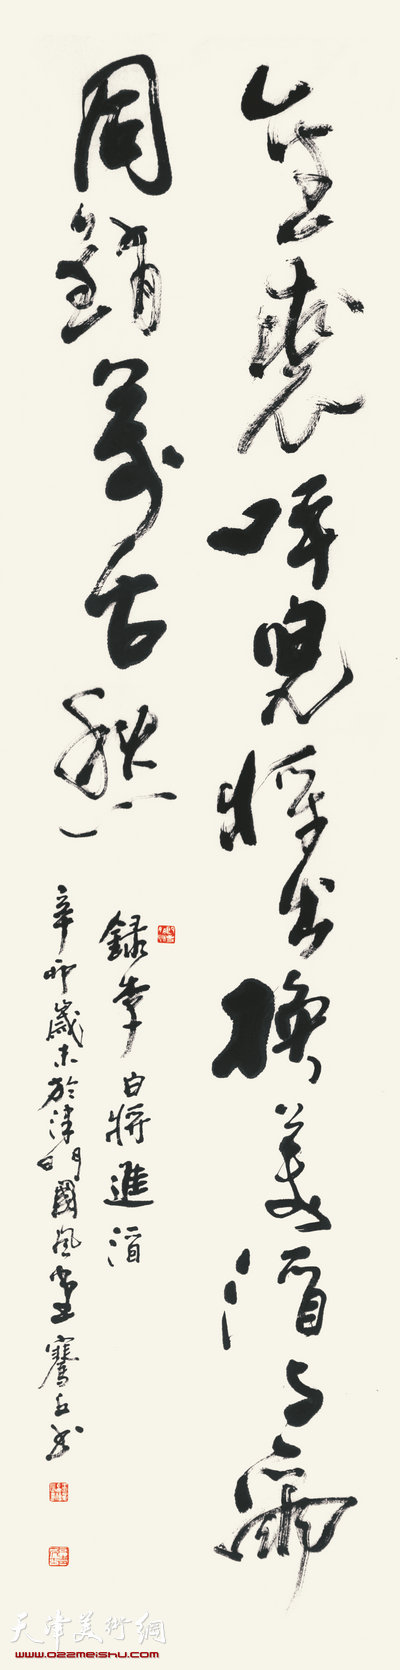 金裘呼兒將出換美酒与爾
同銷萬古愁
録李白將進酒
辛卯歲末於津門國風堂
天津美術網
www.022meishu.com